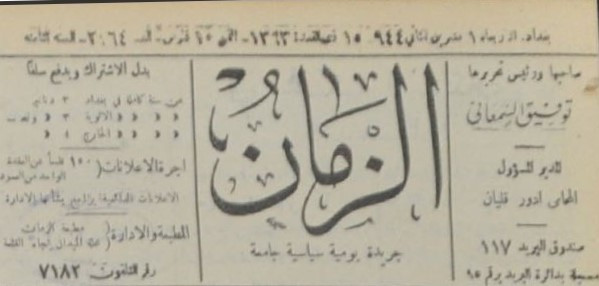 بغداد. الاربعاء ١ تشرين الثاني ٩٤٤ ١٥ ذي القعدة ١٣٦٣ - الثمن ١٥ فلوس - العدد ٢٠٦٤ - السنة الثامنة
صاحبها ورئيس تحريرها
توفيق السمعاني
المدير المسؤول
المحامي ادور قليان
صندوق البريد ١١٧
مسجلة بدائرة البريد برقم ٩٥
الزمان
جريدة يومية سياسية جامعة
بدل الاشتراك ويدفع سلفا
عن سنة كاملة في بغداد ٢ دنانير
» » » الالوية ٣ »
» » » الخارج ٤ »
اجرة الاعلانات ( ١٥٠ فلسا عن العقدة الواحد من العمود
الاعلانات المتتالية يراجع بشأنها الادارة
المطبعة والادارة ( مطبعة الزمان
محلة الميدان تجاه القلعة
رقم التلفون ٧١٨٢